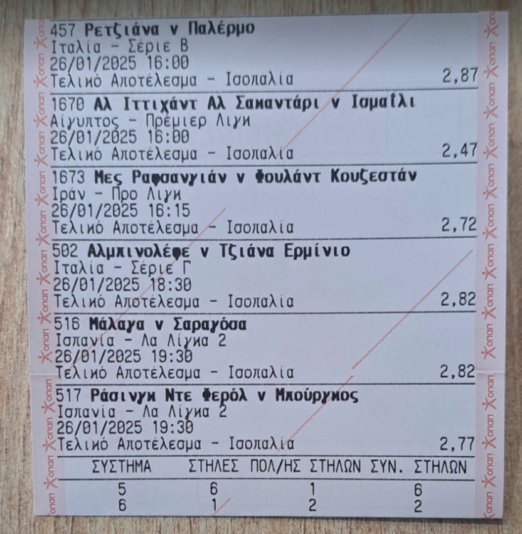 457 Ρετζιάνα v Παλέρμο
Ιταλία - Σέριε Β
26/01/2025 16:00
Τελικό Αποτέλεσμα - Ισοπαλία 2,87
1670 Αλ Ιττιχάντ Αλ Σακαντάρι v Ισμαΐλι
Αίγυπτος - Πρέμιερ Λιγκ
26/01/2025 16:00
Τελικό Αποτέλεσμα - Ισοπαλία 2,47
1673 Μες Ραφσανγιάν v Φουλάντ Κουζεστάν
Ιράν - Προ Λιγκ
26/01/2025 16:15
Τελικό Αποτέλεσμα - Ισοπαλία 2,72
502 Αλμπινολέφε v Τζιάνα Ερμίνιο
Ιταλία - Σέριε Γ
26/01/2025 18:30
Τελικό Αποτέλεσμα - Ισοπαλία 2,82
516 Μάλαγα v Σαραγόσα
Ισπανία - Λα Λίγκα 2
26/01/2025 19:30
Τελικό Αποτέλεσμα - Ισοπαλία 2,82
517 Ράσινγκ Ντε Φερόλ v Μπούργκος
Ισπανία - Λα Λίγκα 2
26/01/2025 19:30
Τελικό Αποτέλεσμα - Ισοπαλία 2,77
ΣΥΣΤΗΜΑ ΣΤΗΛΕΣ ΠΟΛ/ΗΣ ΣΤΗΛΩΝ ΣΥΝ. ΣΤΗΛΩΝ
5 6 1 6
6 1 2 2